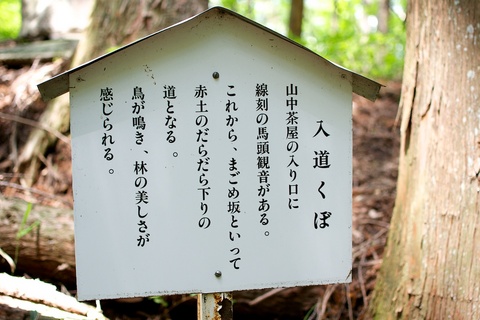 入道くぼ
山中茶屋の入り口に
線刻の馬頭観音がある。
これから、まごめ坂といって
赤土のだらだら下りの
道となる。
鳥が鳴き、林の美しさが
感じられる。